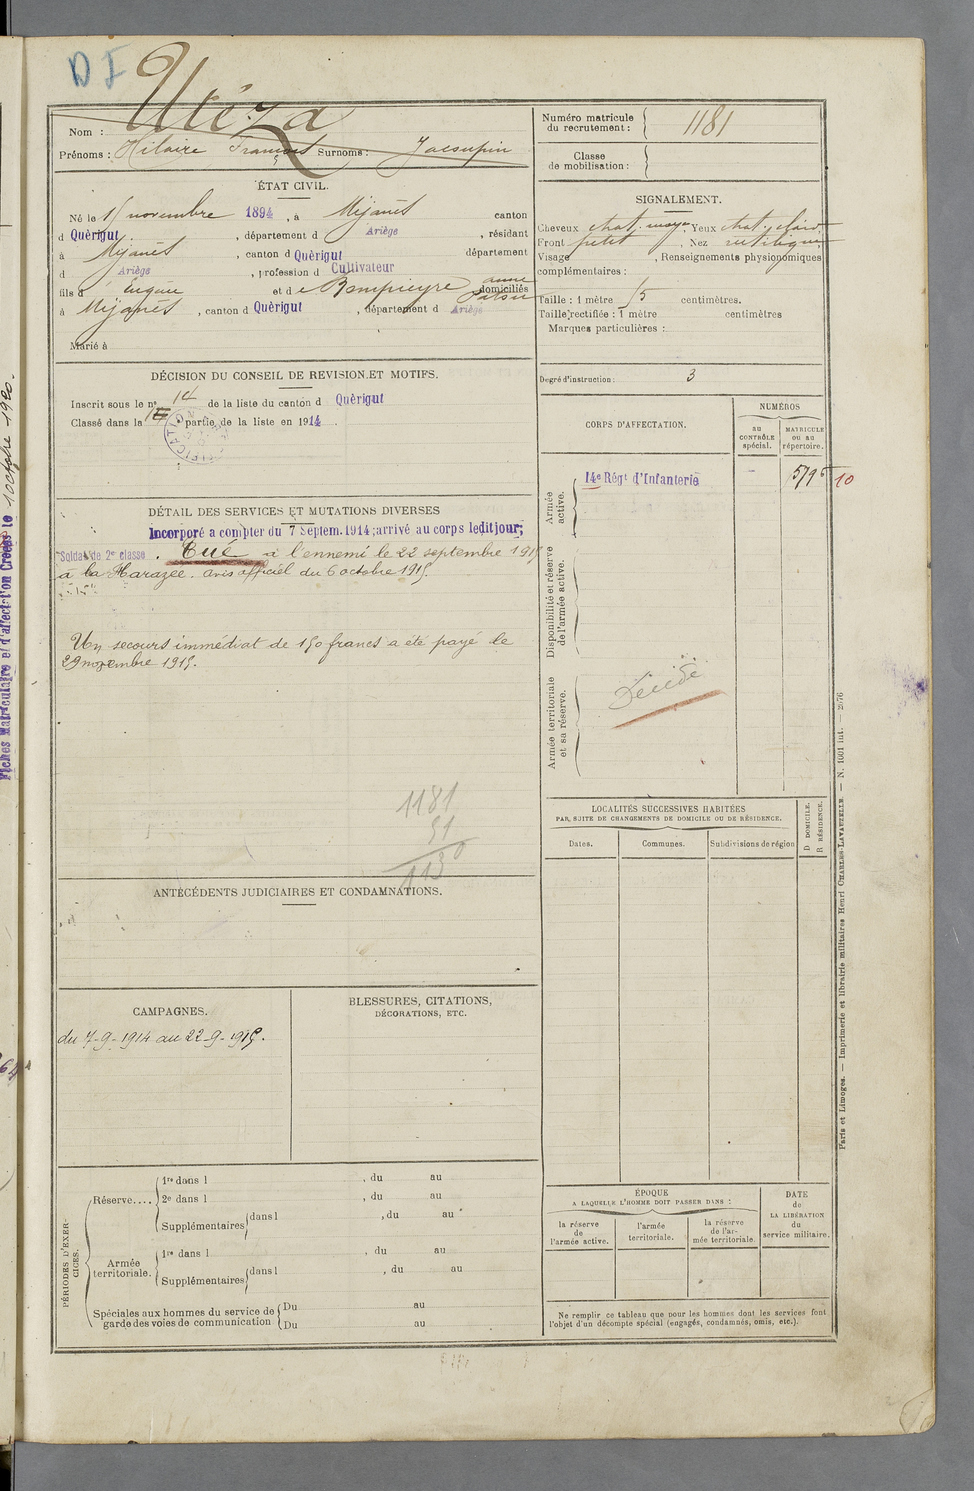 D I
Utéza
Nom :
Prénoms : Hilaire François Surnoms :
Numéro matricule
du recrutement : 1181
Classe
de mobilisation :
ÉTAT CIVIL.
Né le novembre 1894, à Mijanès canton
d Quèrigut, département d Ariège, résidant
à Mijanès, canton d Quèrigut département
d Ariège, profession d Cultivateur
fils d et de anne domiciliés
à Mijanès, canton d Quèrigut, département d Ariège
Marié à
SIGNALEMENT.
Cheveux chat. moyen Yeux chat. clair
Front petit, Nez rectiligne
Visage , Renseignements physionomiques
complémentaires :
Taille : 1 mètre centimètres.
Taille rectifiée : 1 mètre centimètres
Marques particulières :
Degré d'instruction : 3
DÉCISION DU CONSEIL DE REVISION ET MOTIFS.
Inscrit sous le n° 14 de la liste du canton d Quèrigut
Classé dans la partie de la liste en 1914.
DÉTAIL DES SERVICES ET MUTATIONS DIVERSES
Incorporé a compter du 7 Septem. 1914; arrivé au corps ledit jour;
Soldat de 2e classe. Tué à l'ennemi le 22 septembre 1915
à La Harazée. avis officiel du 6 octobre 1915.
Un secours immédiat de 150 francs a été payé le
29 novembre 1915.
1181
51
1130
CORPS D'AFFECTATION.
NUMÉROS
au
CONTRÔLE
spécial.
MATRICULE
ou au
répertoire.
Armée
active.
14e Régt d'Infanterie
10
Disponibilité et réserve
de l'armée active.
Armée territoriale
et sa réserve.
Décédé
LOCALITÉS SUCCESSIVES HABITÉES
PAR SUITE DE CHANGEMENTS DE DOMICILE OU DE RÉSIDENCE.
Dates.
Communes.
Subdivisions de région
D DOMICILE.
R RÉSIDENCE.
ANTÉCÉDENTS JUDICIAIRES ET CONDAMNATIONS.
CAMPAGNES.
du 7-9-1914 au 22-9-1915.
BLESSURES, CITATIONS,
DÉCORATIONS, ETC.
PÉRIODES D'EXER-
CICES.
Réserve....
1re dans l , du au
2e dans l , du au
Supplémentaires dans l , du au
Armée
territoriale.
1re dans l , du au
Supplémentaires dans l , du au
Spéciales aux hommes du service de
garde des voies de communication
Du au
Du au
ÉPOQUE
A LAQUELLE L'HOMME DOIT PASSER DANS :
la réserve
de
l'armée active.
l'armée
territoriale.
la réserve
de l'ar-
mée territoriale.
DATE
de
LA LIBÉRATION
du
service militaire.
Ne remplir ce tableau que pour les hommes dont les services font
l'objet d'un décompte spécial (engagés, condamnés, omis, etc.).
Paris et Limoges. — Imprimerie et librairie militaires Henri CHARLES-LAVAUZELLE. — N. 1001 int. — 2676
Fiches Matriculaire et d'affectation Créées le 1 Octobre 1920.